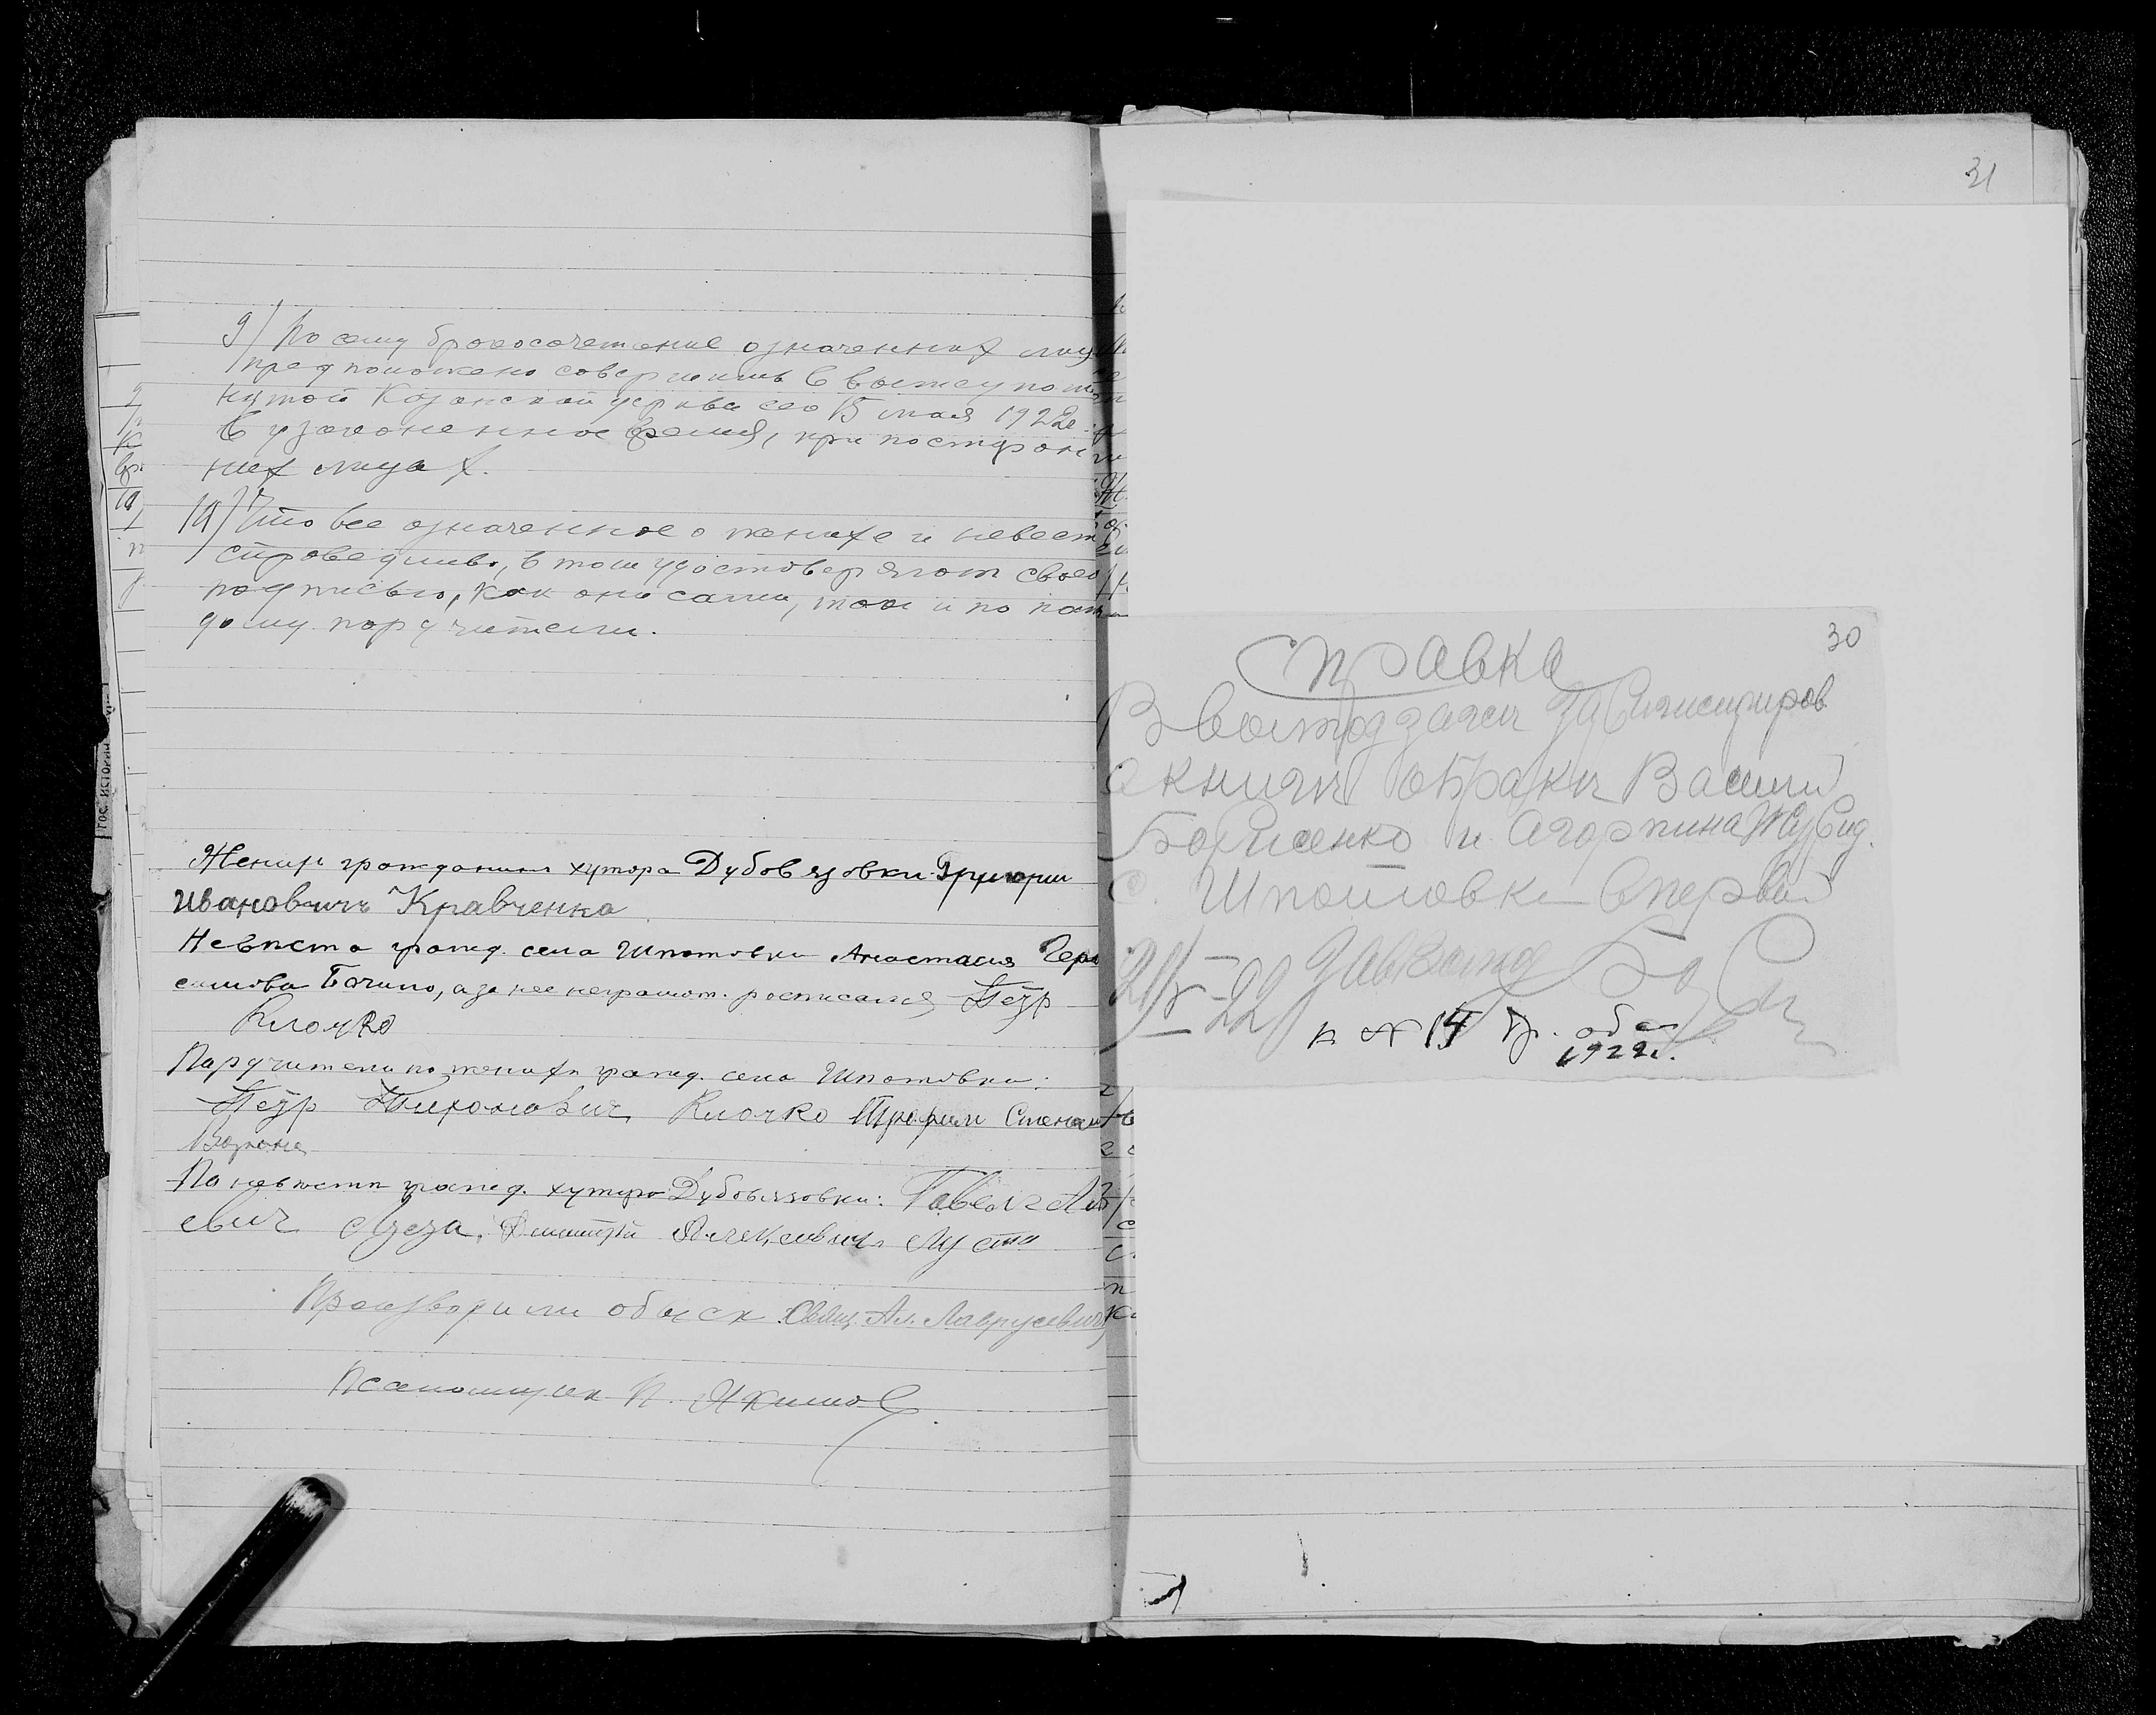 9) По сему бракосочетание означенных лиц
предположено совершить в вышеупомя
нутой Казанской церкви сего 15 мая 1922 г.
в узаконенное время, при посторон
них лицах.
10) Что все означенное о женихе и невест
справедливо, в том удостоверяют свое
подписью, как они сами, так и по
поручители.
Жених гражданин хутора Дубовязовки Григорий
Иванович Кравченко
Невѣста гражд. села Шпотовки Анастасия Гера
симова Бачино, а за нее неграмот. росписался Пётр
Клочко
Поручители по женихѣ гражд. села Шпотовки:
Пётр Тихонович Клочко Трофим Степан
По невѣстѣ гражд. хутора Дубовязовки: Павел
евич Лузга, Димитрий Алексеевич Луста
Производили обыск Свящ. Ал. Лаврусевич
Псаломщик П. Якимов
31
30
Справка
В
книги о браки Васили
Борисенко и Агарпина
с. Шпотовки первой
21/V-22
к № 14 бр. обы
1922 г.